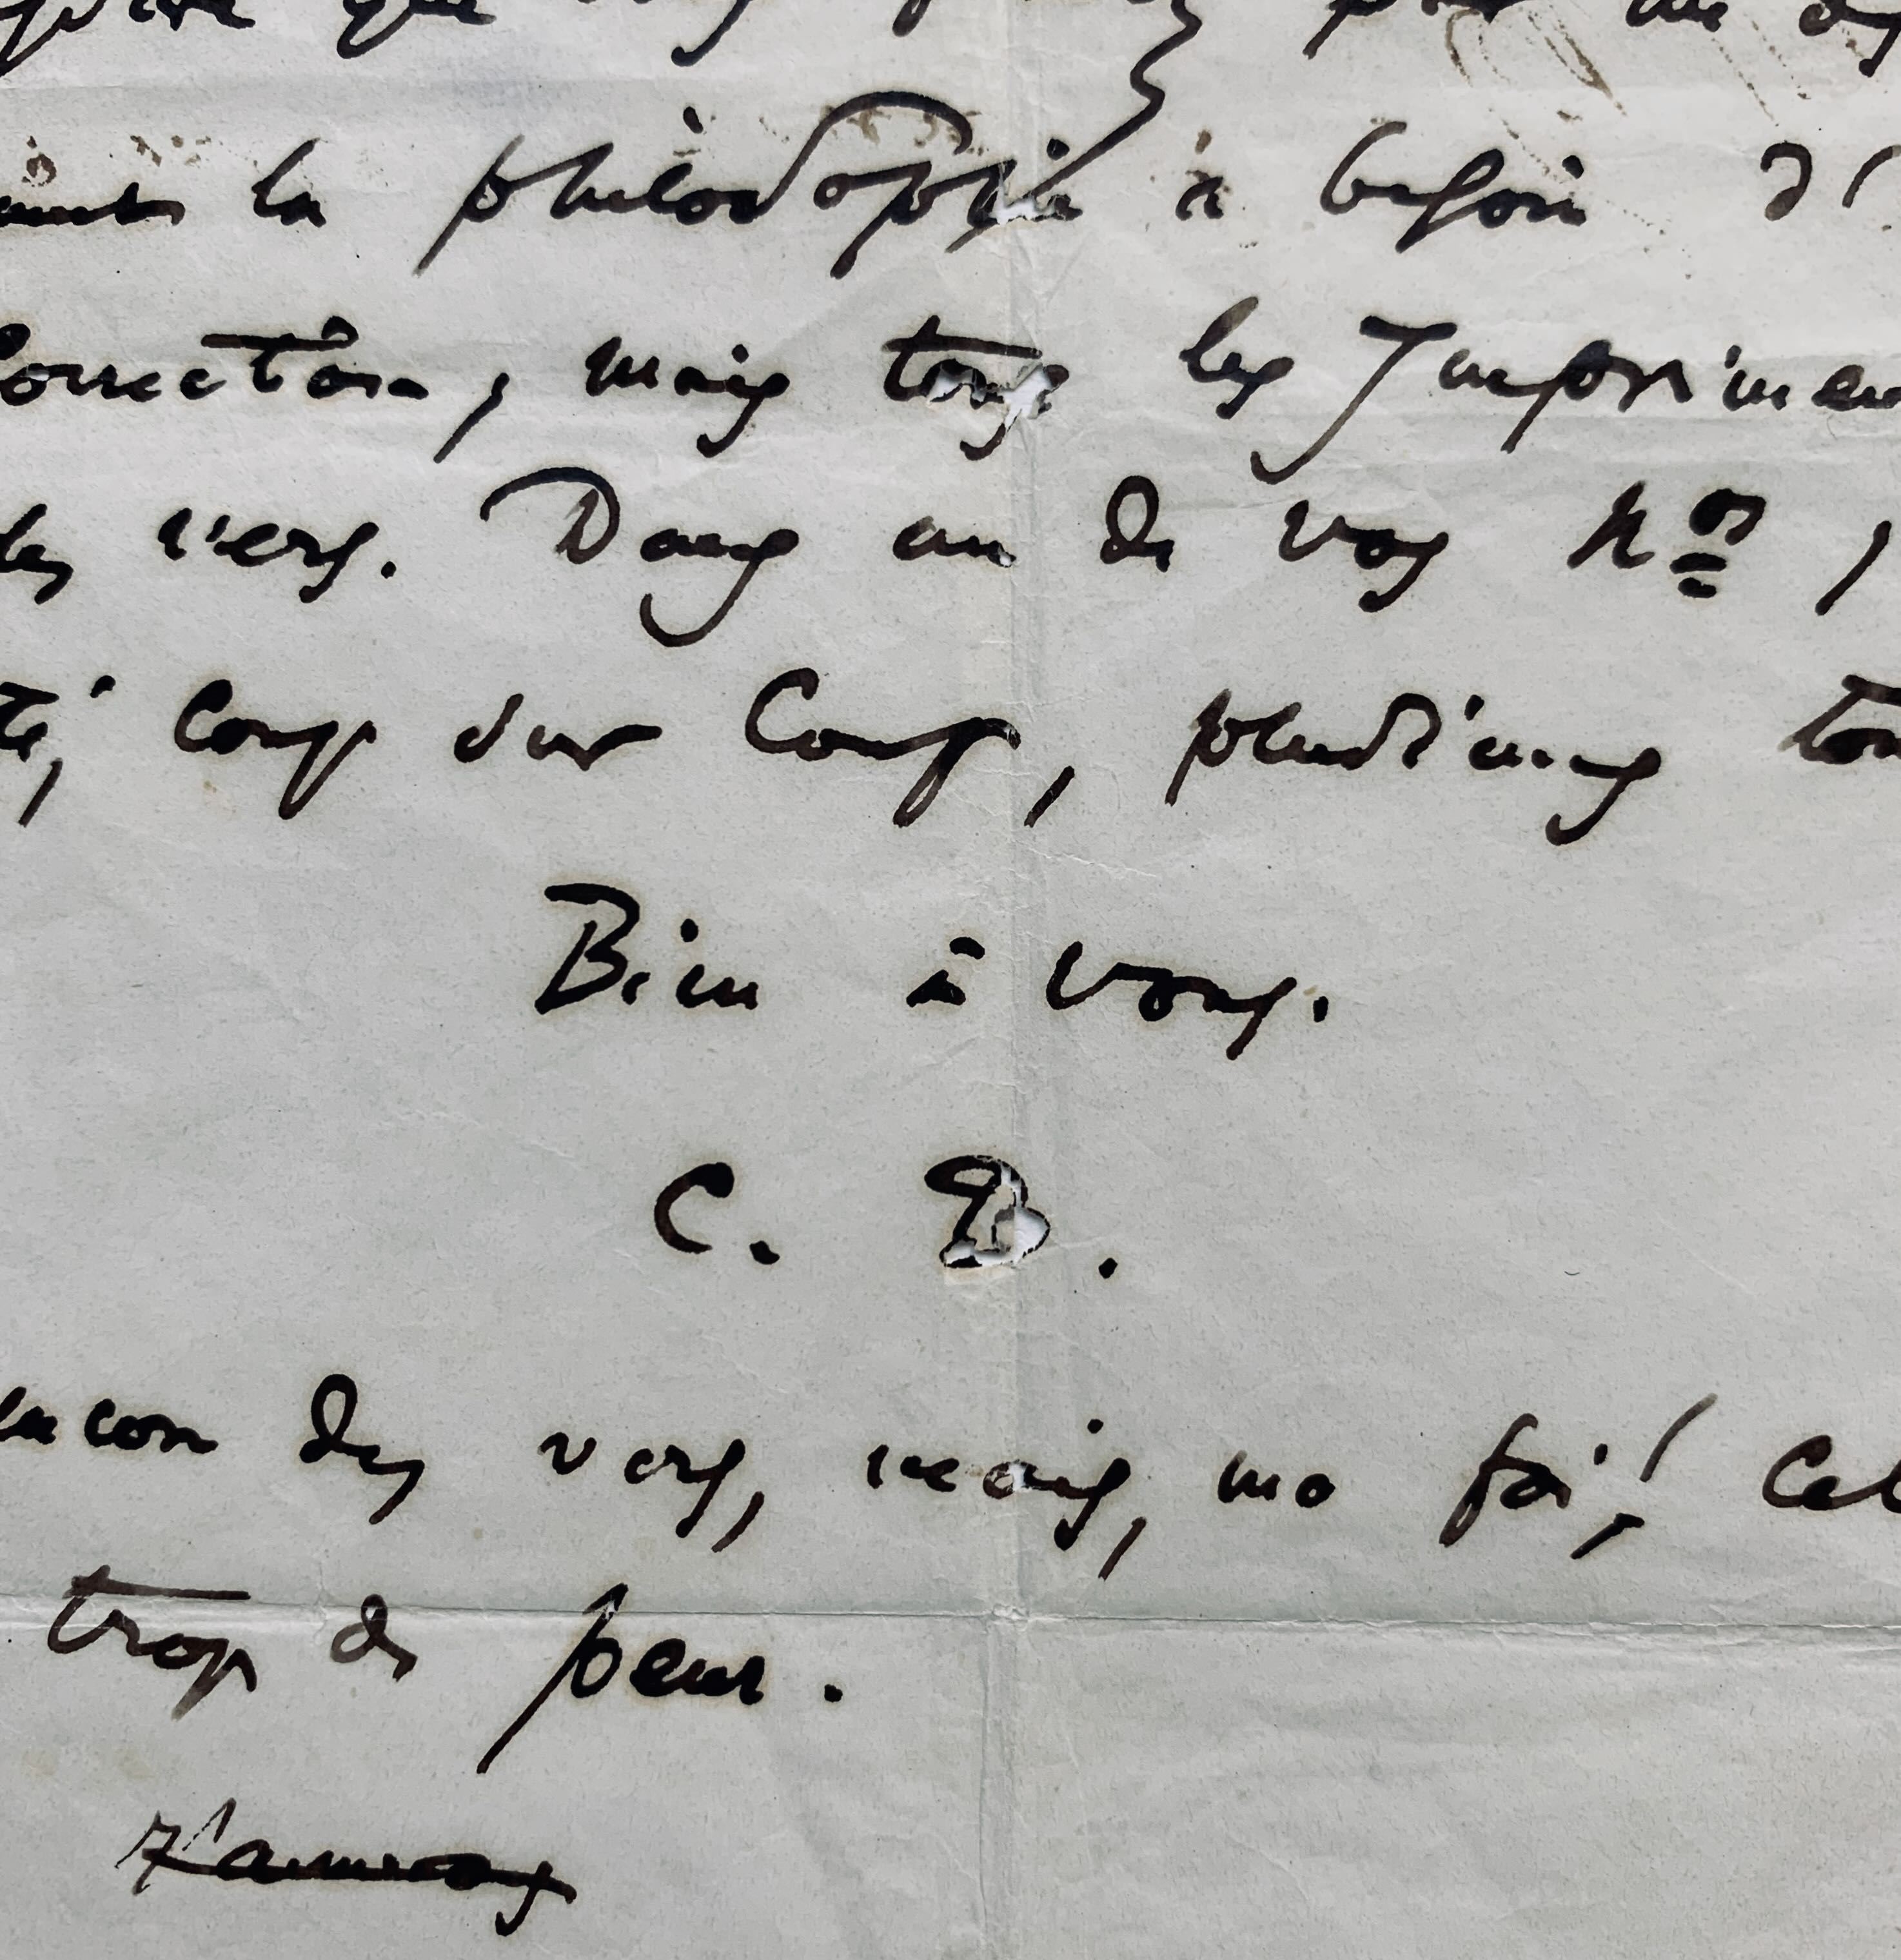 que
la philosophie a besoin d'
correction, mais tous les Imprimeu
les vers. Dans un de vos nos,
té, coup sur coup, plusieurs
Bien à vous.
C. B.
des vers, mais, ma foi! cel
trop de peur.